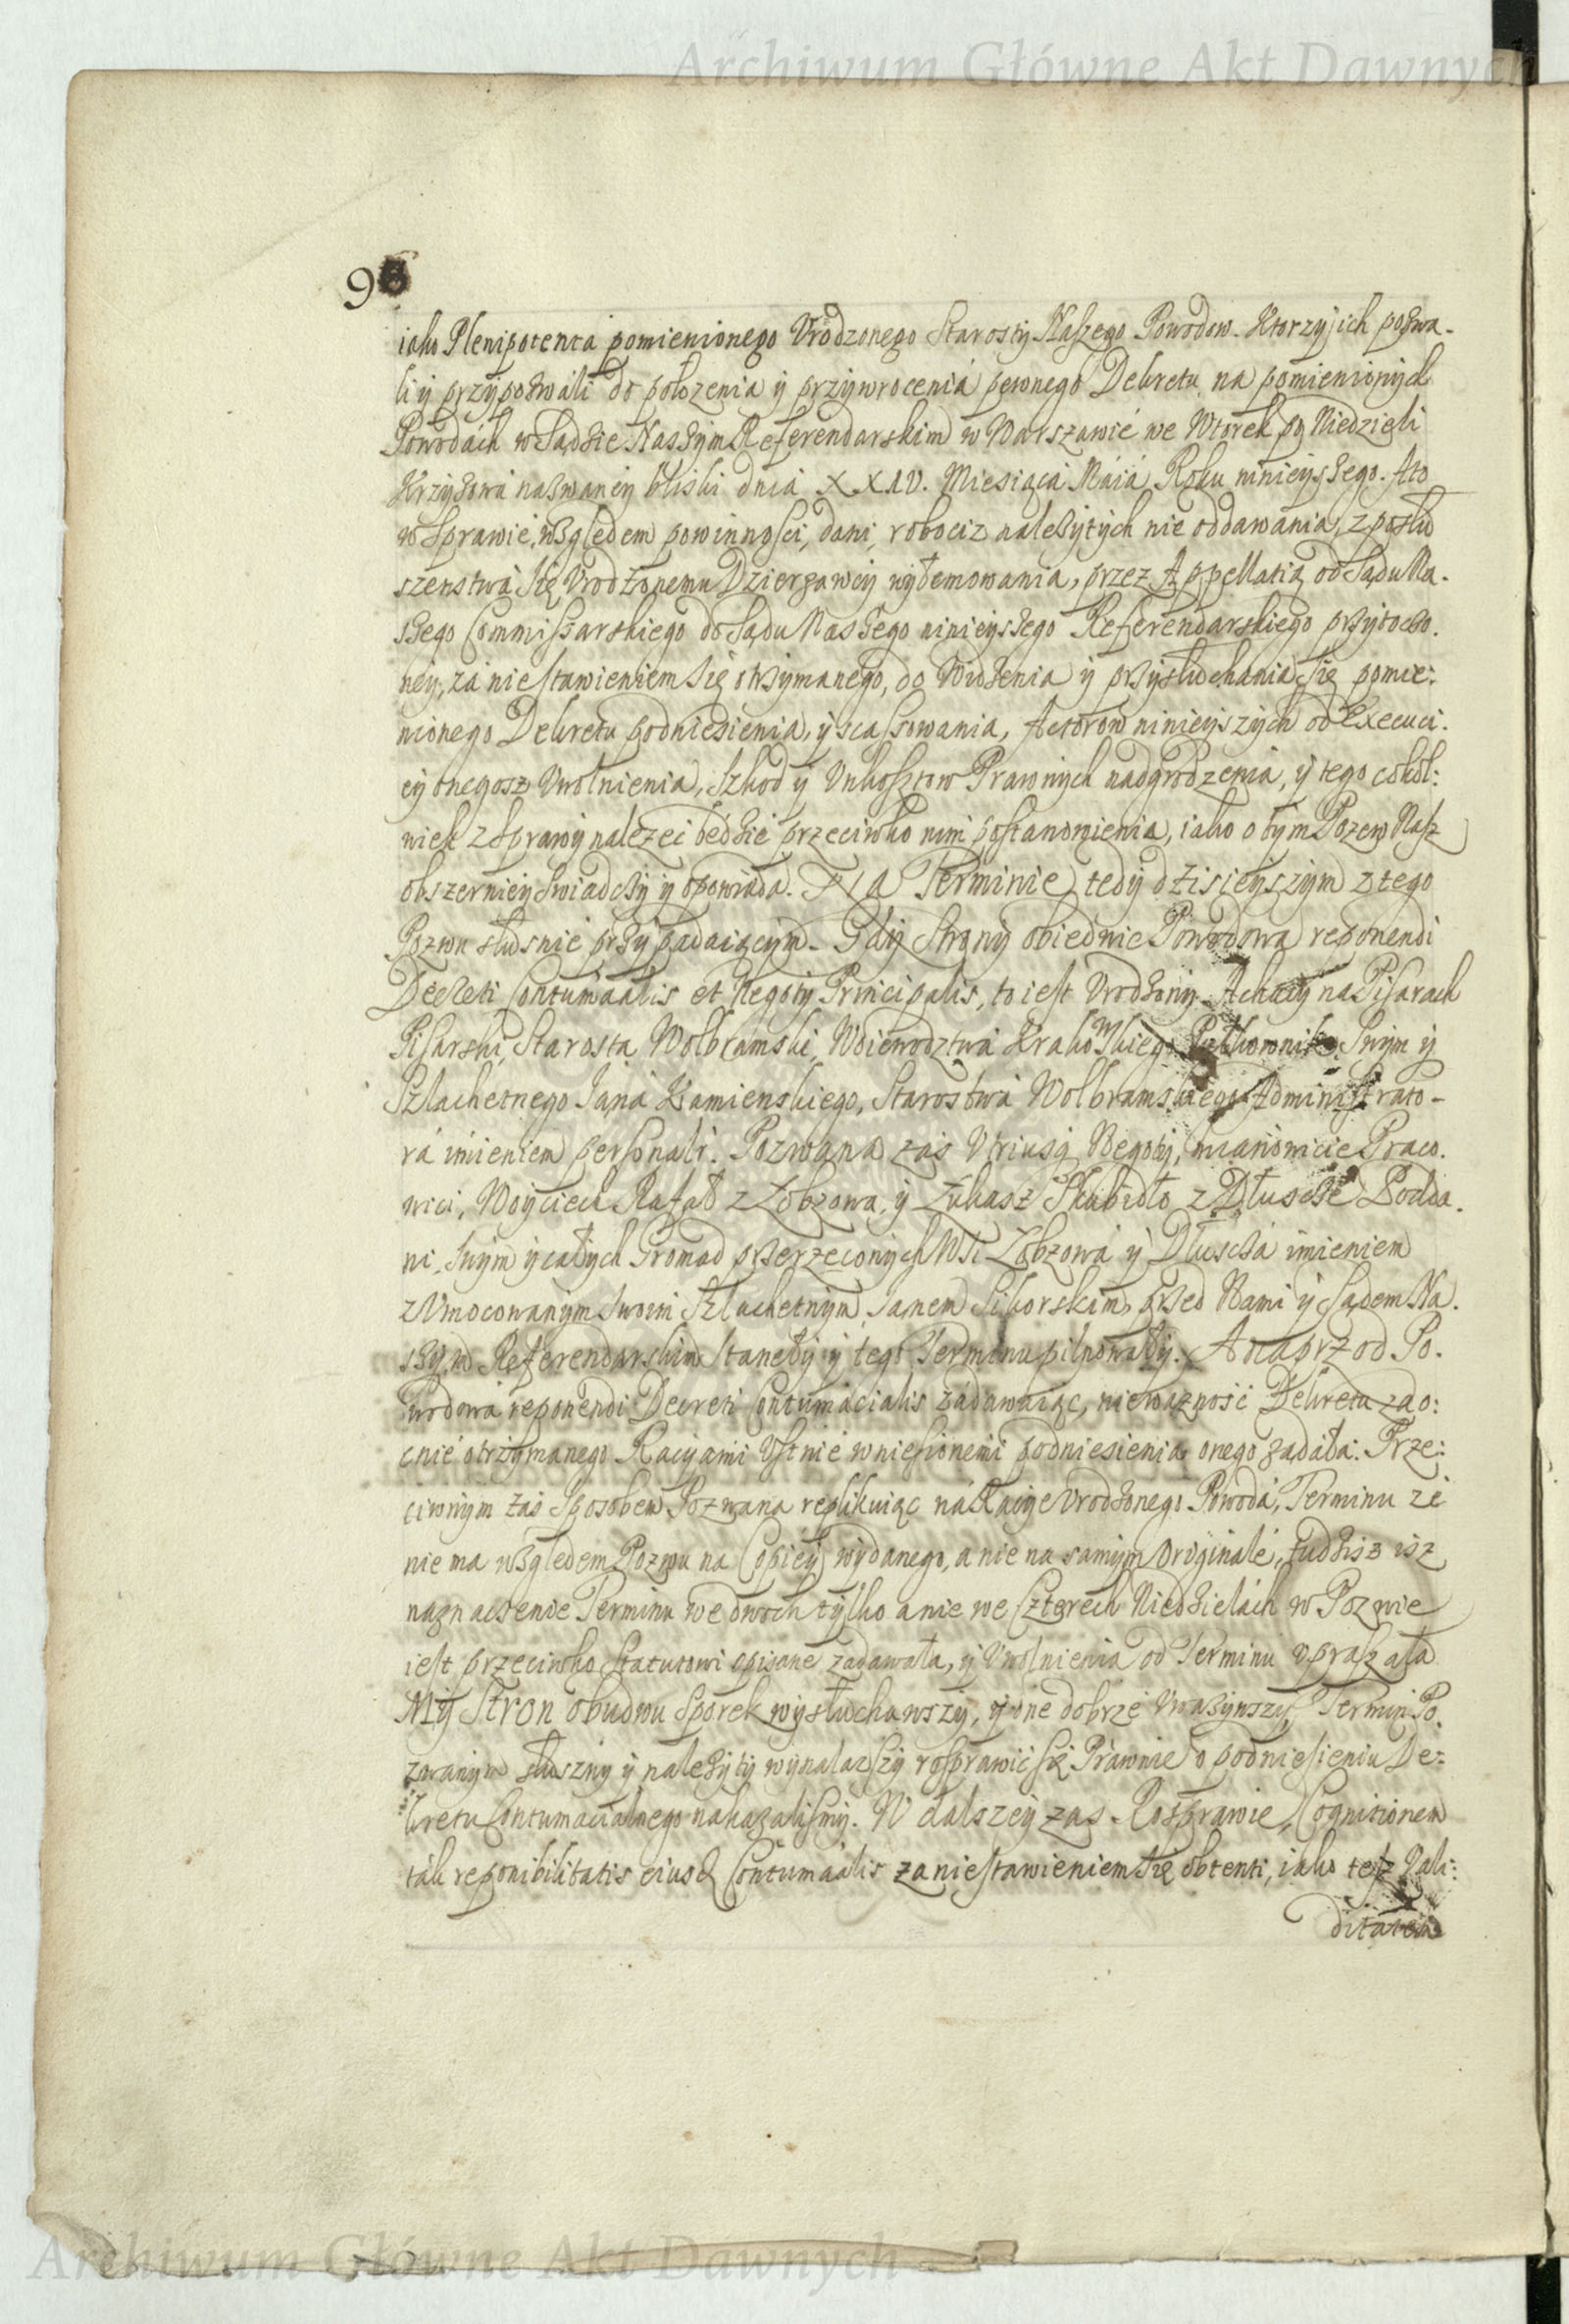 Archiwum Główne Akt Dawnych
98
iako Plenipotenta pomienionego Vrodzonego Starosty Naszego Powodow. Ktorzy ich pozwa-
li y przypozwali do położenia y przywrocenia pewnego Dekretu na pomienionych
Powodach w Sądzie Naszym Referendarskim w Warszawie we Wtorek po Niedzieli
Krzyżowa nazwaney bliski dnia XXIV. Miesiąca Maia Roku ninieyszego. A to
w Sprawie, względem powinności, dani, robocizn należytych nie oddawania, z posłu
szenstwa Się Vrodzonemu Dzierzawcy wyłemowania, przez Appellatią od Sądu Na-
szego Commissarskiego do Sądu Naszego ninieyszego Referendarskiego przytoczo-
ney, za niestawieniem się otrzymanego, do Widzenia y przysłuchania się pomie:
nionego Dekretu podniesienia, y scassowania, Actorow ninieyszych od Execuci:
ey onegosz Vwolnienia, Szkod y Vnkosztow Prawnych nadgrodzenia, y tego cokol:
wiek z Sprawy należeć będzie przeciwko nim postanowienia, iako o tym Pozew Nasz
obszerniey Swiadczy y opowiada. Na Terminie tedy dzisieyszym z tego
Pozwu słusnie przypadaiącym. Gdy Strony obiedwie Powodowa reponendi
Decreti Contumacialis et Negotij Principalis, to iest Vrodzony Achacy na Pisarach
Pisarski, Starosta Wolbramski, Woiewodztwa Krakowskiego Pułkownik, Swym y
Szlachetnego Jana Kamienskiego, Starostwa Wolbramskiego Administrato-
ra imieniem personali. Pozwana zaś Vtriusq Negotij, mianowicie Praco-
wici, Woyciech Rafał z Zobzowa, y Łukasz Skabidło z Dłuscse Podda-
ni, Swym y całych Gromad przerzeczonych Wsi Zobzowa y Dłuscsa imieniem
z Vmocowanym Swoim Szlachetnym Janem Sikorskim, przed Nami y Sądem Na-
szym Referendarskim Staneły y tego Terminu pilnowały. A naprzod Po-
wodowa reponendi Decreti Contumacialis zadawaiąc, nieważność Dekretu zao:
cnie otrzymanego Racyami Vstnie wniesionemi podniesienia onego żądała. Prze:
ciwnym zaś Sposobem Pozwana replikuiąc na Racye Vrodzonego Powoda, Terminu że
nie ma względem Pozwu na Copiey wydanego, a nie na samym Originale, tudzisz isz
naznaczenie Terminu we dwoch tylko a nie we Czterech Niedzielach w Pozwie
iest przeciwko Statutowi opisane zadawała, y Vwolnienia od Terminu vpraszała
My Stron obudwu Sporek wysłuchawszy, y one dobrze Vważywszy, Termin Po-
zwanym słuszny y należyty wynalazszy rosprawić się Prawnie o podniesieniu De:
kretu Contumacialnego nakazalismy. W dalszey zaś Rosprawie, Cognitionem
tak reponibilitatis eiusd Contumacialis za niestawieniem się obtenti, iako tesz Vali:
ditatem
Archiwum Główne Akt Dawnych